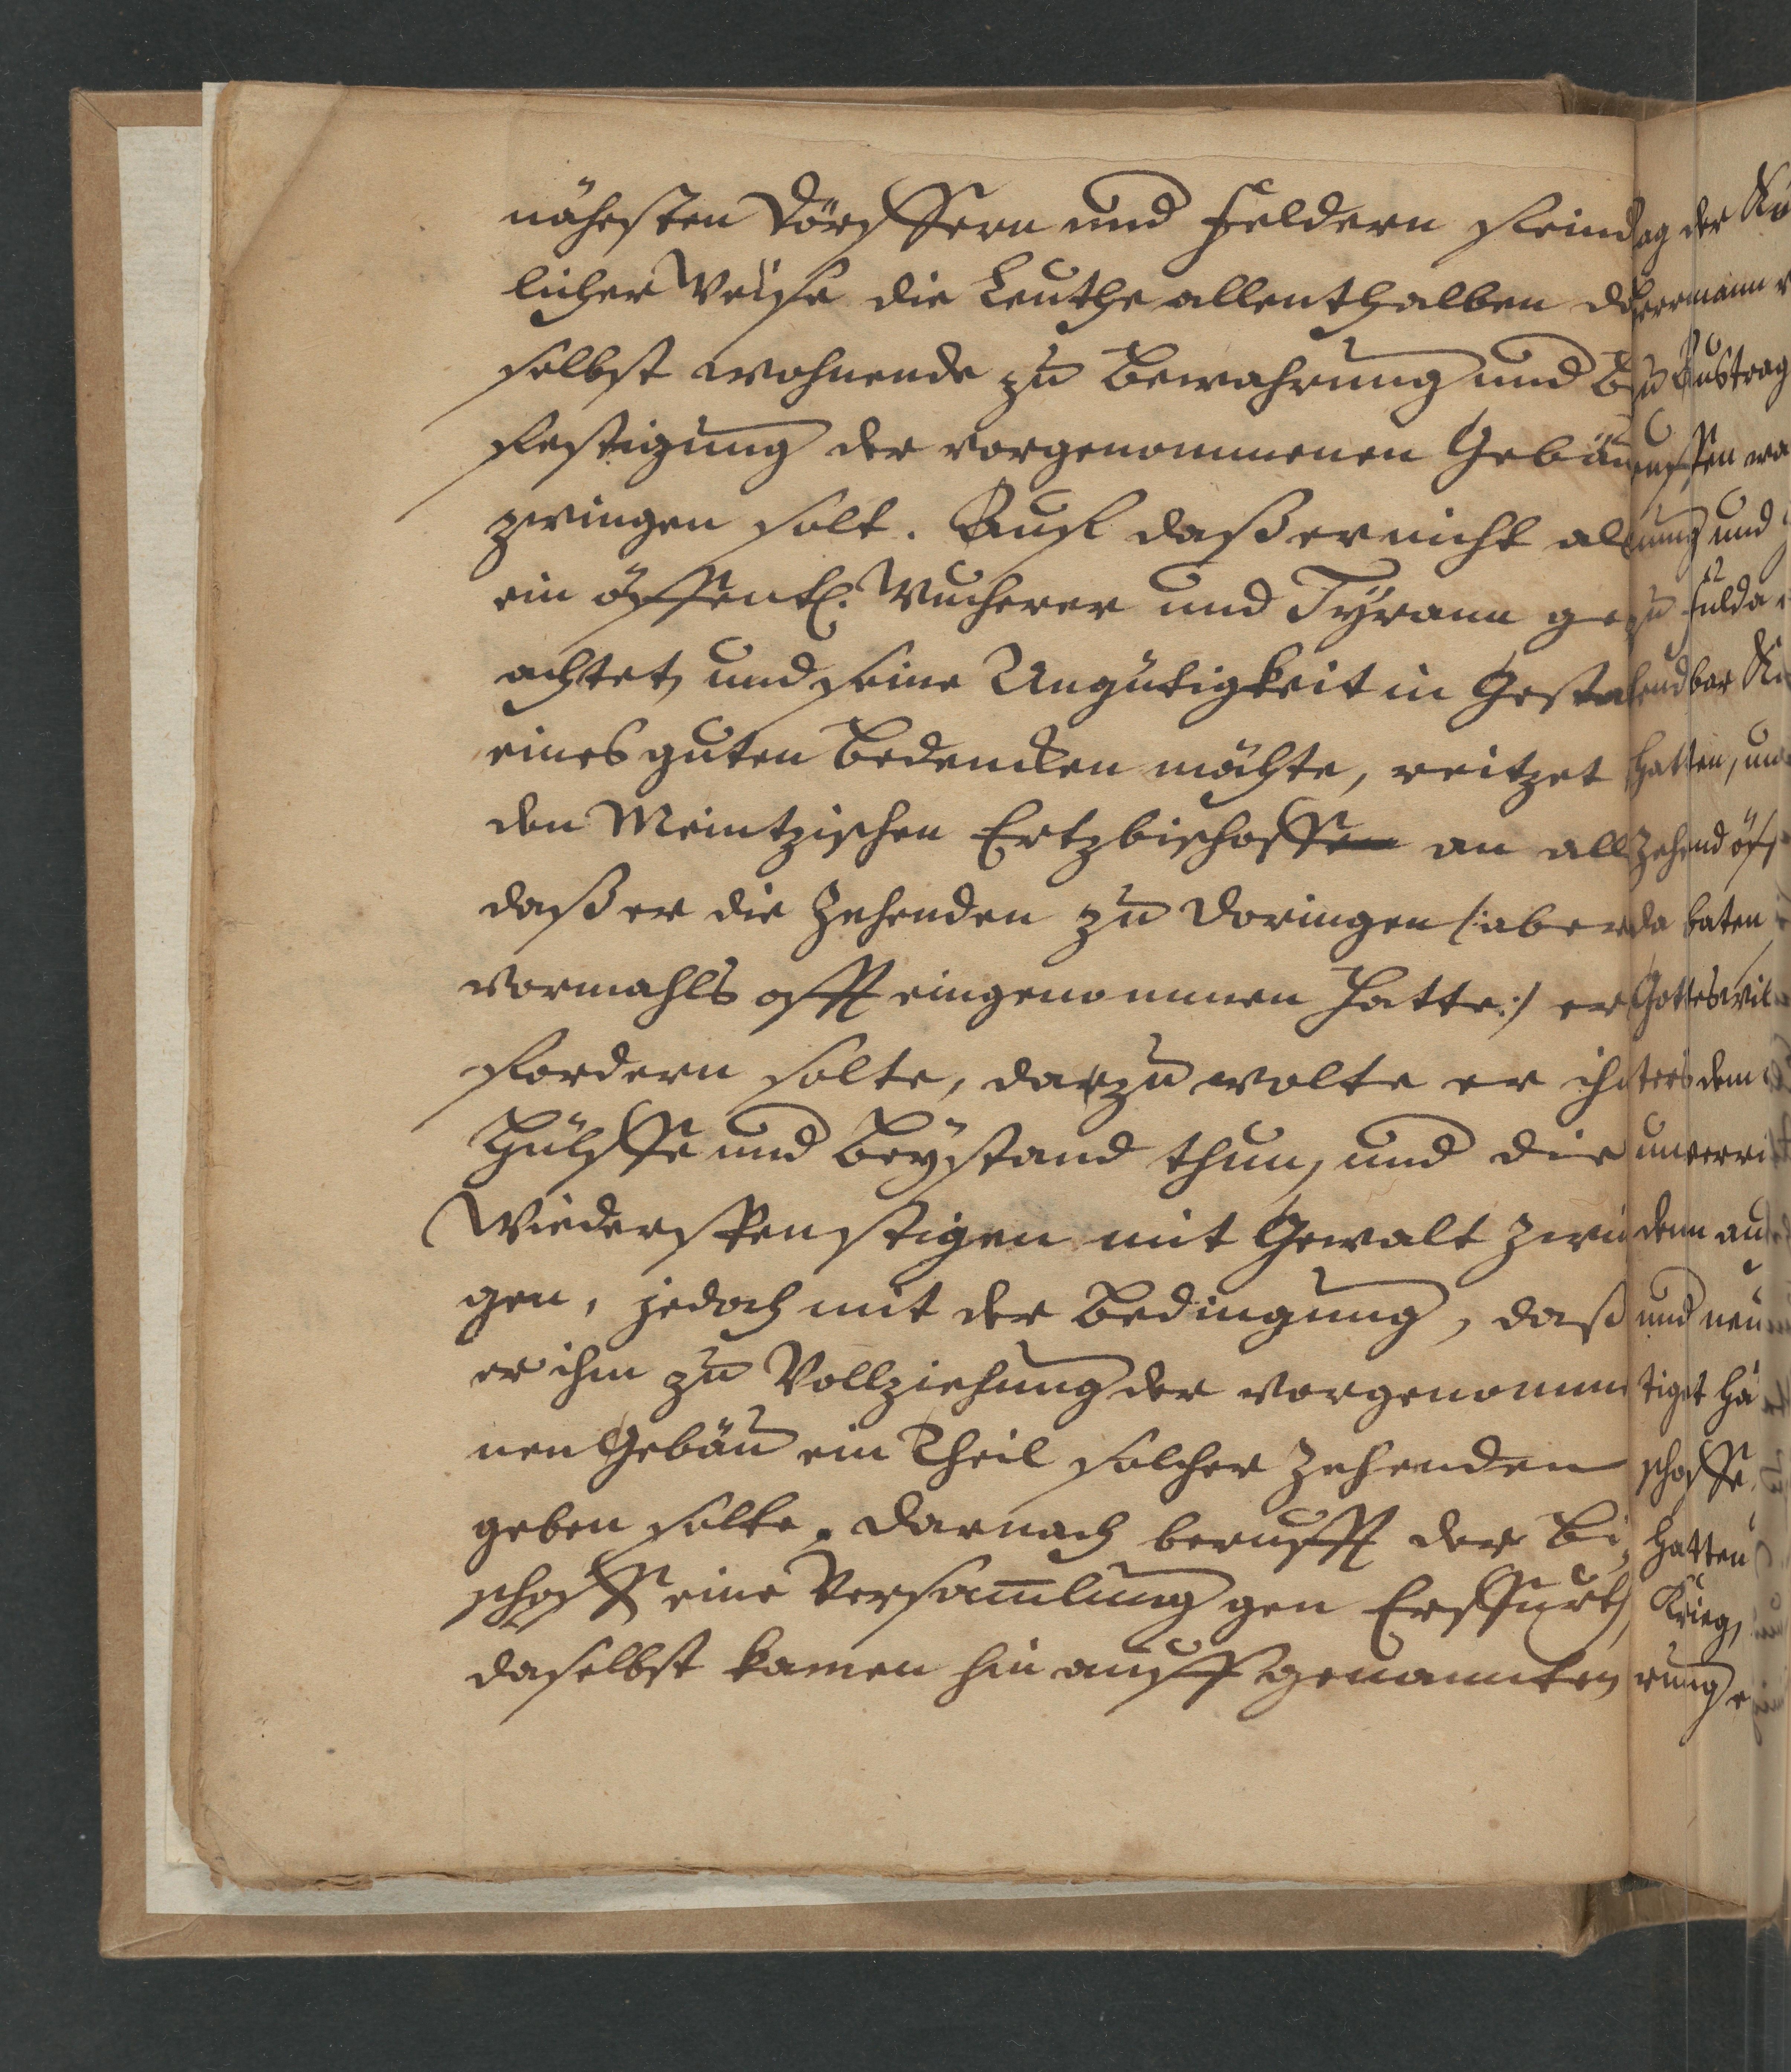 nähesten Dörffern und Feldern feind
licher Weise die Leuthe allenthalben d
selbst wohnende zu Bewahrung und B
festigung der vorgenommenen Gebäu
zwingen solt. Auf daß er nicht al
ein öffentl. Wucherer und Tÿrann ge
achtet, und seine Ungütigkeit in Gestal
eines guten Bedencken möchte, reitzet
den Meintzischen Ertzbischoffen an all
daß er die Zehenden zu Doringen /:aber
vormahls offt eingenommen hatte:/ er
fordern solte, darzu wolte er ih
Hülffe und Beÿstand thun, und die
Wiederspenstigen mit Gewalt zwin
gen, jedoch mit der Bedingung, daß
er ihm zu Vollziehung der vorgenomm
nen Gebäu ein Theil solcher Zehenden
geben solte. Darnach berufft der Bi,
schoff eine Versam̅lung gen Erffurth,
daselbst kamen hin auff genannten
ag der
ermann
Austrag
und
zu Fulda
hatten, und
Zehend
da baten
Gottes wil
dem
unverri
denn au
und neu
tiget hä
schoffe
hatten
Krieg,
rung